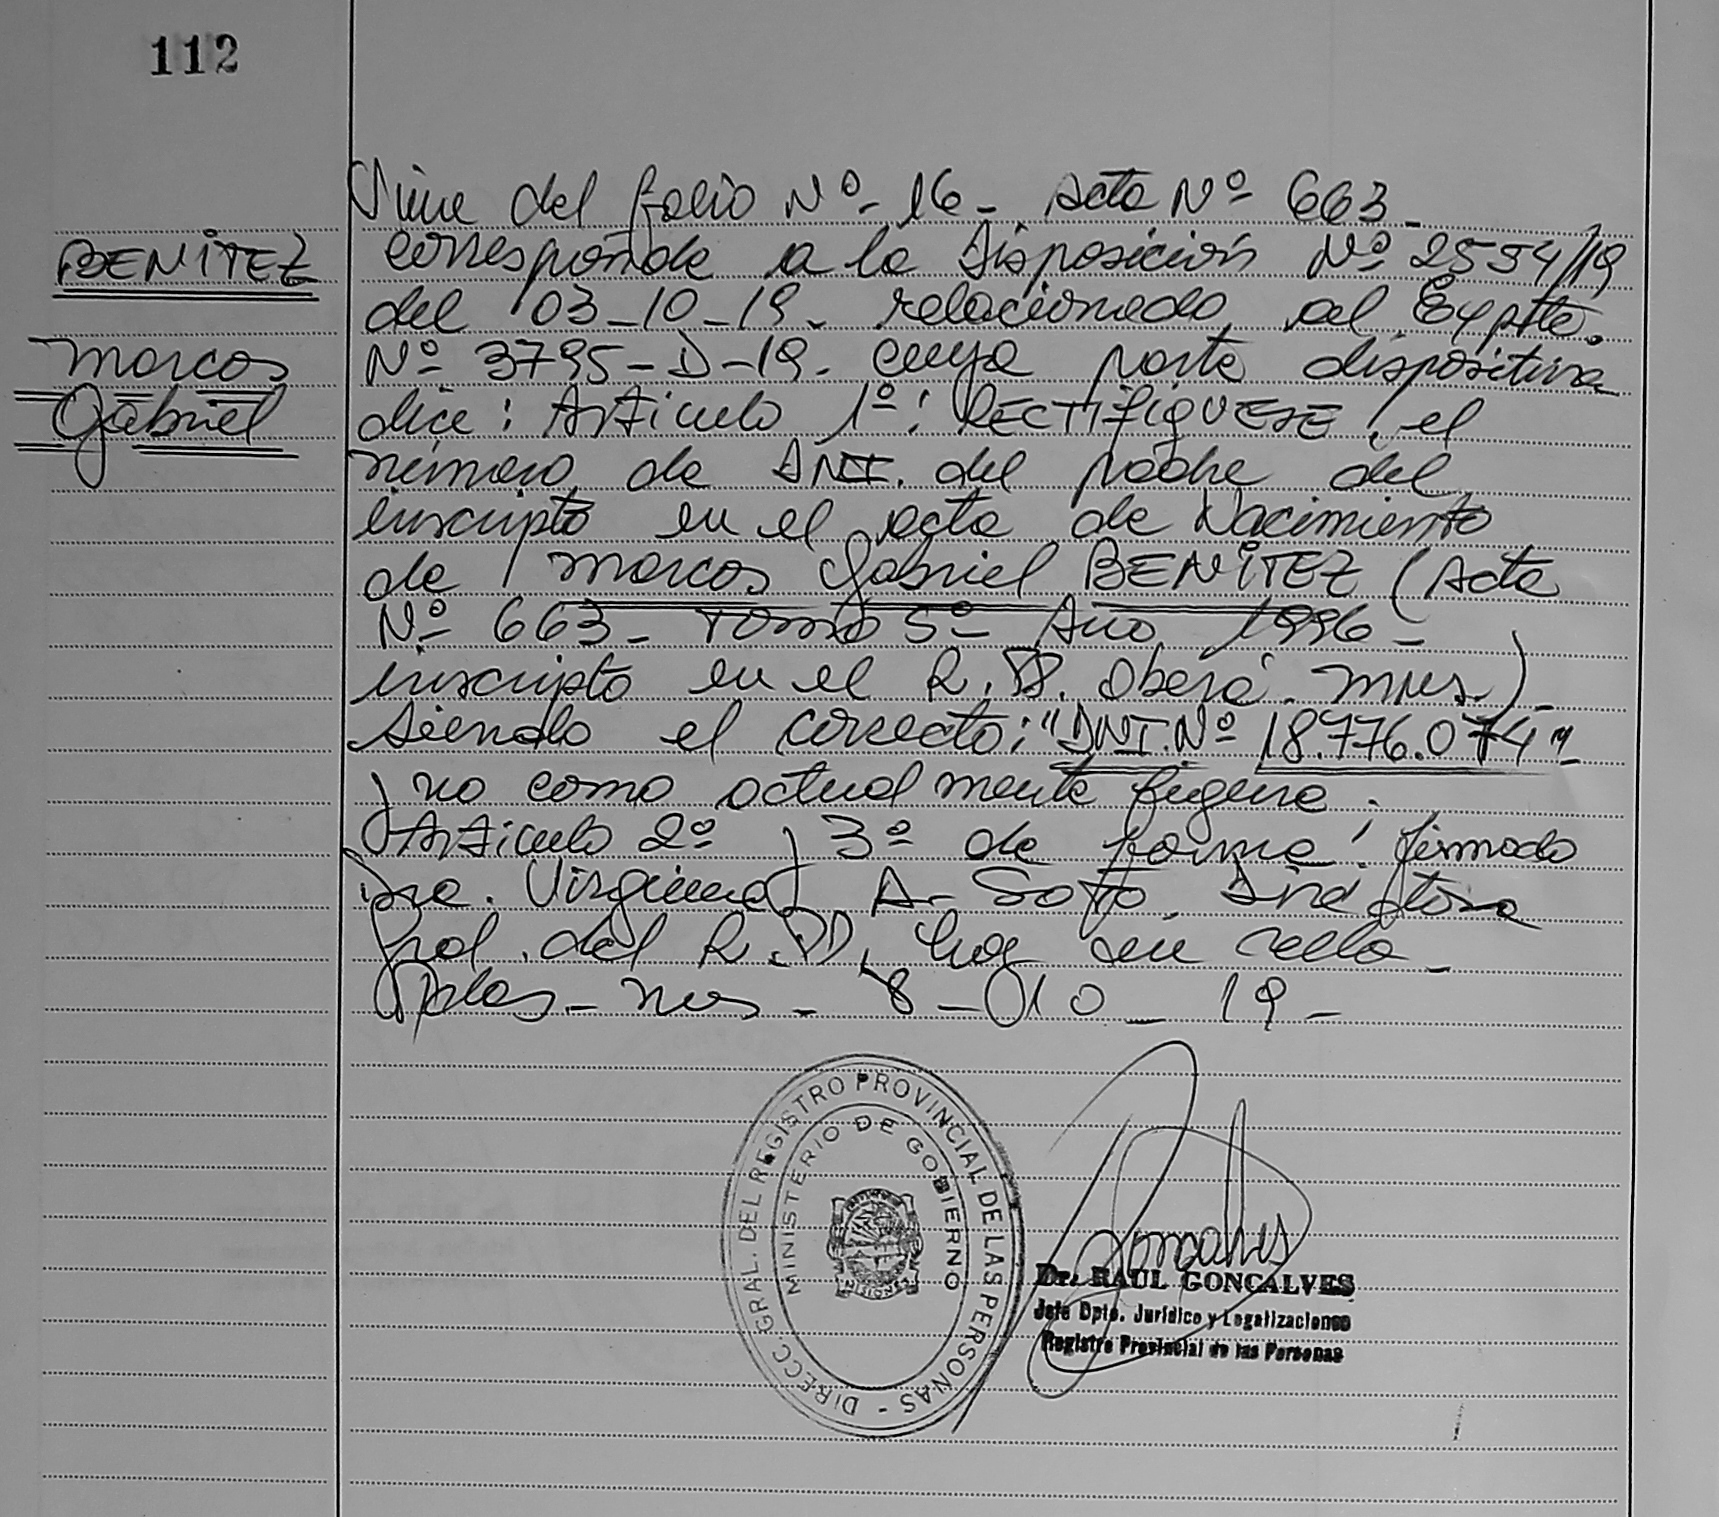 112
BENITEZ
Marcos
Gabriel
Viene del folio Nº- 16- Acta Nº 663-
corresponde a la Disposición Nº 2554/19
del 03-10-19- relacionado al Expte.
Nº 3795-D-19- cuya parte dispositiva
dice: Artículo 1º: RECTIFIQUESE, el
número de DNI. del padre del
inscripto en el acta de Nacimiento
de Marcos Gabriel BENITEZ (Acta
Nº 663- Tomo 5º Año 1996-
inscripto en el R.PP. Oberá- Mnes.)-
siendo el correcto: "DNI.Nº 18.776.074"
y no como actualmente figura.
Artículo 2º y 3º de forma. firmado
Dra. Virginia A- Directora
del R.PP. hay un sello-
Pdas- Mes- 8-010-19-
DIRECC. GRAL. DEL REGISTRO PROVINCIAL DE LAS PERSONAS -
MINISTERIO DE GOBIERNO
MISIONES
Dr. RAUL GONCALVES
Jefe Dpto. Jurídico y Legalizaciones
Registro Provincial de las Personas